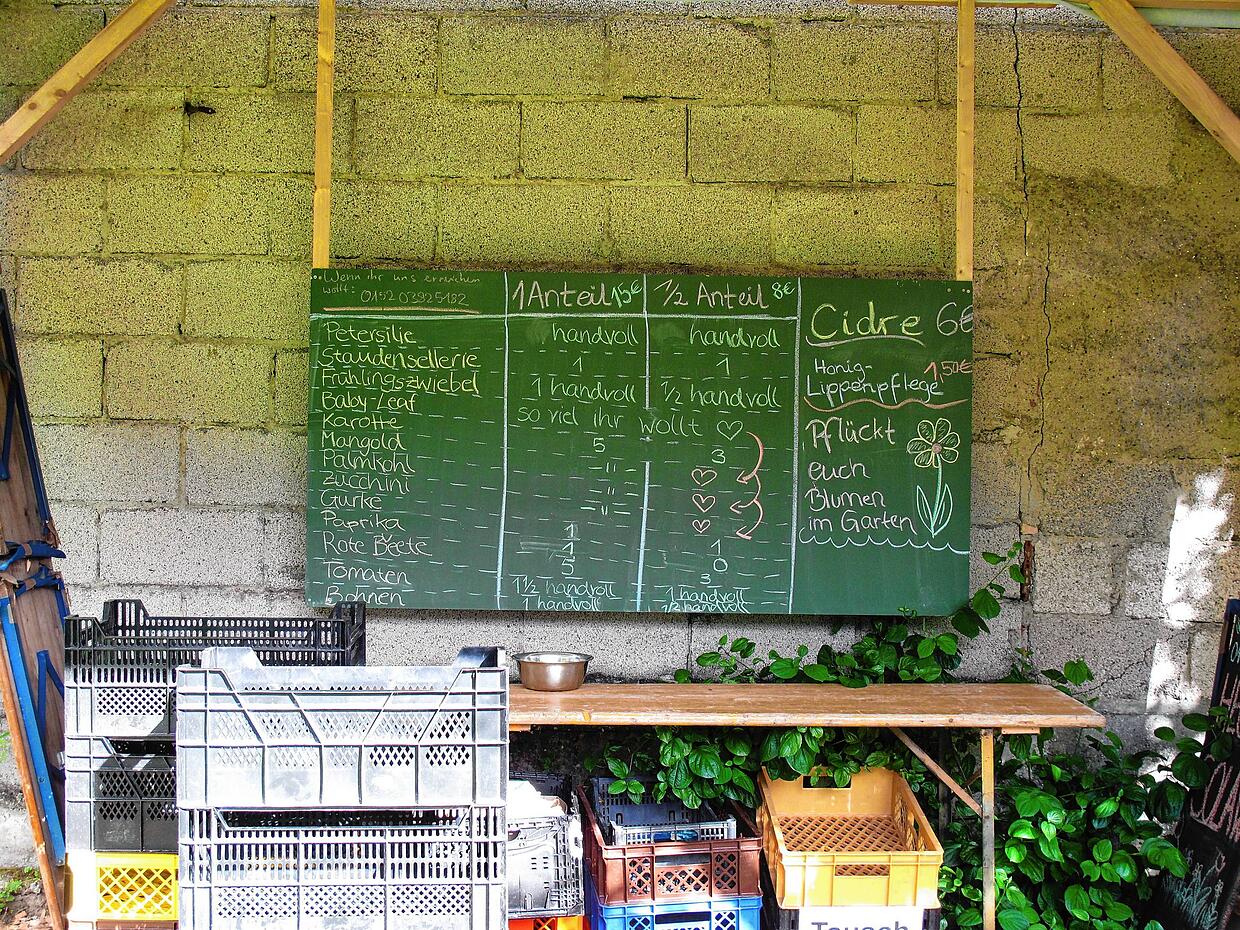 Wenn ihr uns erreichen
wollt: 0152 03925182
1 Anteil 15€
1/2 Anteil 8€
Petersilie handvoll handvoll
Staudensellerie 1 1
Frühlingszwiebel 1 handvoll 1/2 handvoll
Baby-Leaf so viel ihr wollt ♡
Karotte 5 3
Mangold -"- ♡
Palmkohl -"- ♡
Zucchini -"- ♡
Gurke 1 1
Paprika 1 0
Rote Beete 5 3
Tomaten 1 1/2 handvoll 1 handvoll
Bohnen 1 handvoll 1/2 handvoll
Cidre 6€
Honig-
Lippenpflege 1,50€
Pflückt
euch
Blumen
im Garten
Tausch